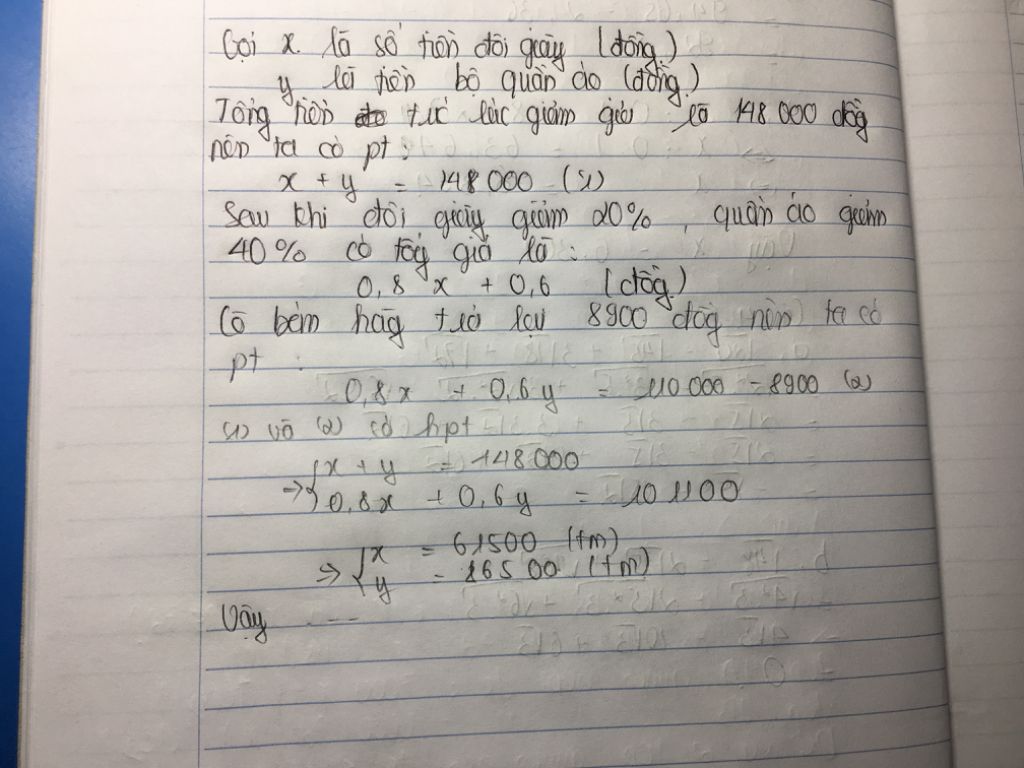 Gọi x là số tiền đôi giày (đồng)
y là tiền bộ quần áo (đồng)
Tổng tiền trc lúc giảm giá là 148 000 đồg
nên ta có pt :
x + y = 148 000 (1)
Sau khi đôi giày giảm 20% , quần áo giảm
40% có tổg giá là :
0,8 x + 0,6 (đồg)
Cô bán hàg trả lại 8900 đồg nên ta có
pt :
0,8 x + 0,6 y = 110 000 - 8900 (2)
(1) và (2) có hpt
=> { x + y = 148 000
0,8x + 0,6 y = 101100
=> { x = 61500 (tm)
y = 86500 (tm)
Vậy ---